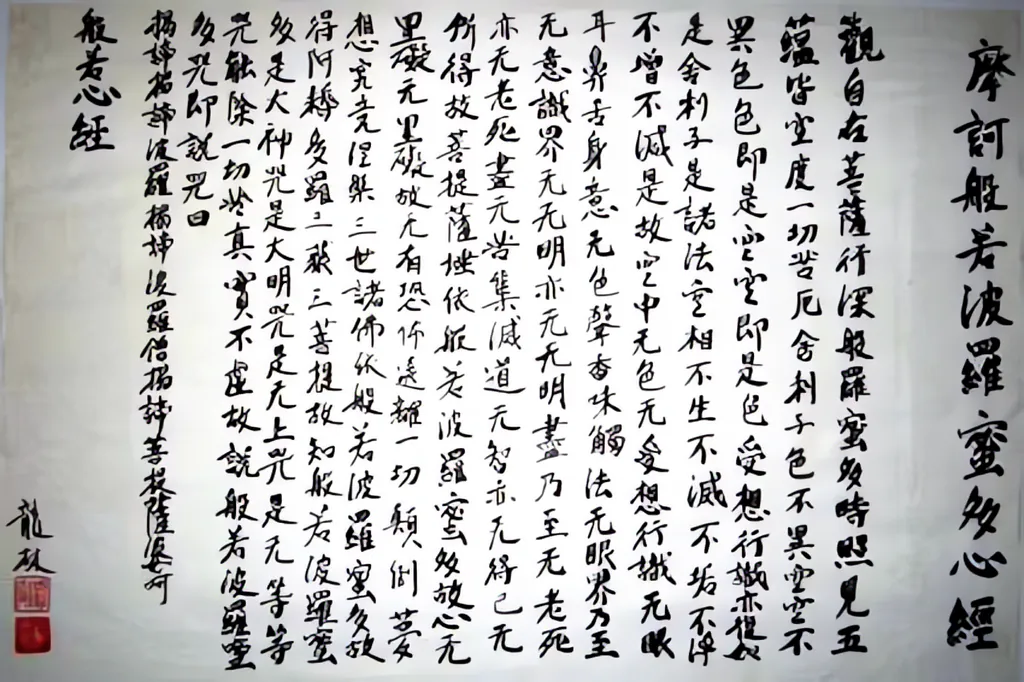 摩訶般若波羅蜜多心經
觀自在菩薩行深般羅蜜多時照見五
蘊皆空度一切苦厄舍利子色不異空空不
異色色即是空空即是色受想行識亦復如
是舍利子是諸法空相不生不滅不垢不淨
不增不減是故空中无色无受想行識无眼
耳鼻舌身意无色聲香味觸法无眼界乃至
无意識界无无明亦无无明盡乃至无老死
亦无老死盡无苦集滅道无智亦无得已无
所得故菩提薩埵依般若波羅蜜多故心无
罣礙无罣礙故无有恐怖遠離一切顛倒夢
想究竟涅槃三世諸佛依般若波羅蜜多故
得阿耨多羅三藐三菩提故知般若波羅蜜
多是大神咒是大明咒是无上咒是无等等
咒能除一切苦真實不虛故說般若波羅蜜
多咒即說咒曰
揭諦揭諦波羅揭諦波羅僧揭諦菩提薩婆訶
般若心經
龍